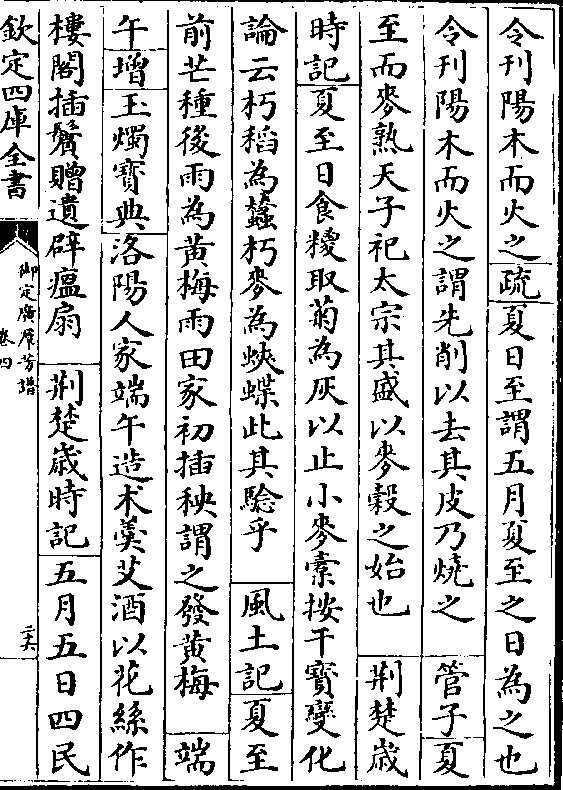 令刋陽木而火之疏夏日至謂五月夏至之日為之也
令刋陽木而火之謂先削以去其皮乃燒之　管子夏
至而麥熟天子祀太宗其盛以麥穀之始也　荆楚歳
時記夏至日食糉取菊為灰以止小麥蠧按干寶變化
論云朽稻為蠶朽麥為蛺蝶此其騐乎　風土記夏至
前芒種後雨為黄梅雨田家初插秧謂之發黄梅　端
午增玉燭寶典洛陽人家端午造术羮艾酒以花絲作
樓閣插鬢贈遺辟瘟扇　荆楚歳時記五月五日四民
欽定四庫全書
御定廣羣芳譜
卷四
二六